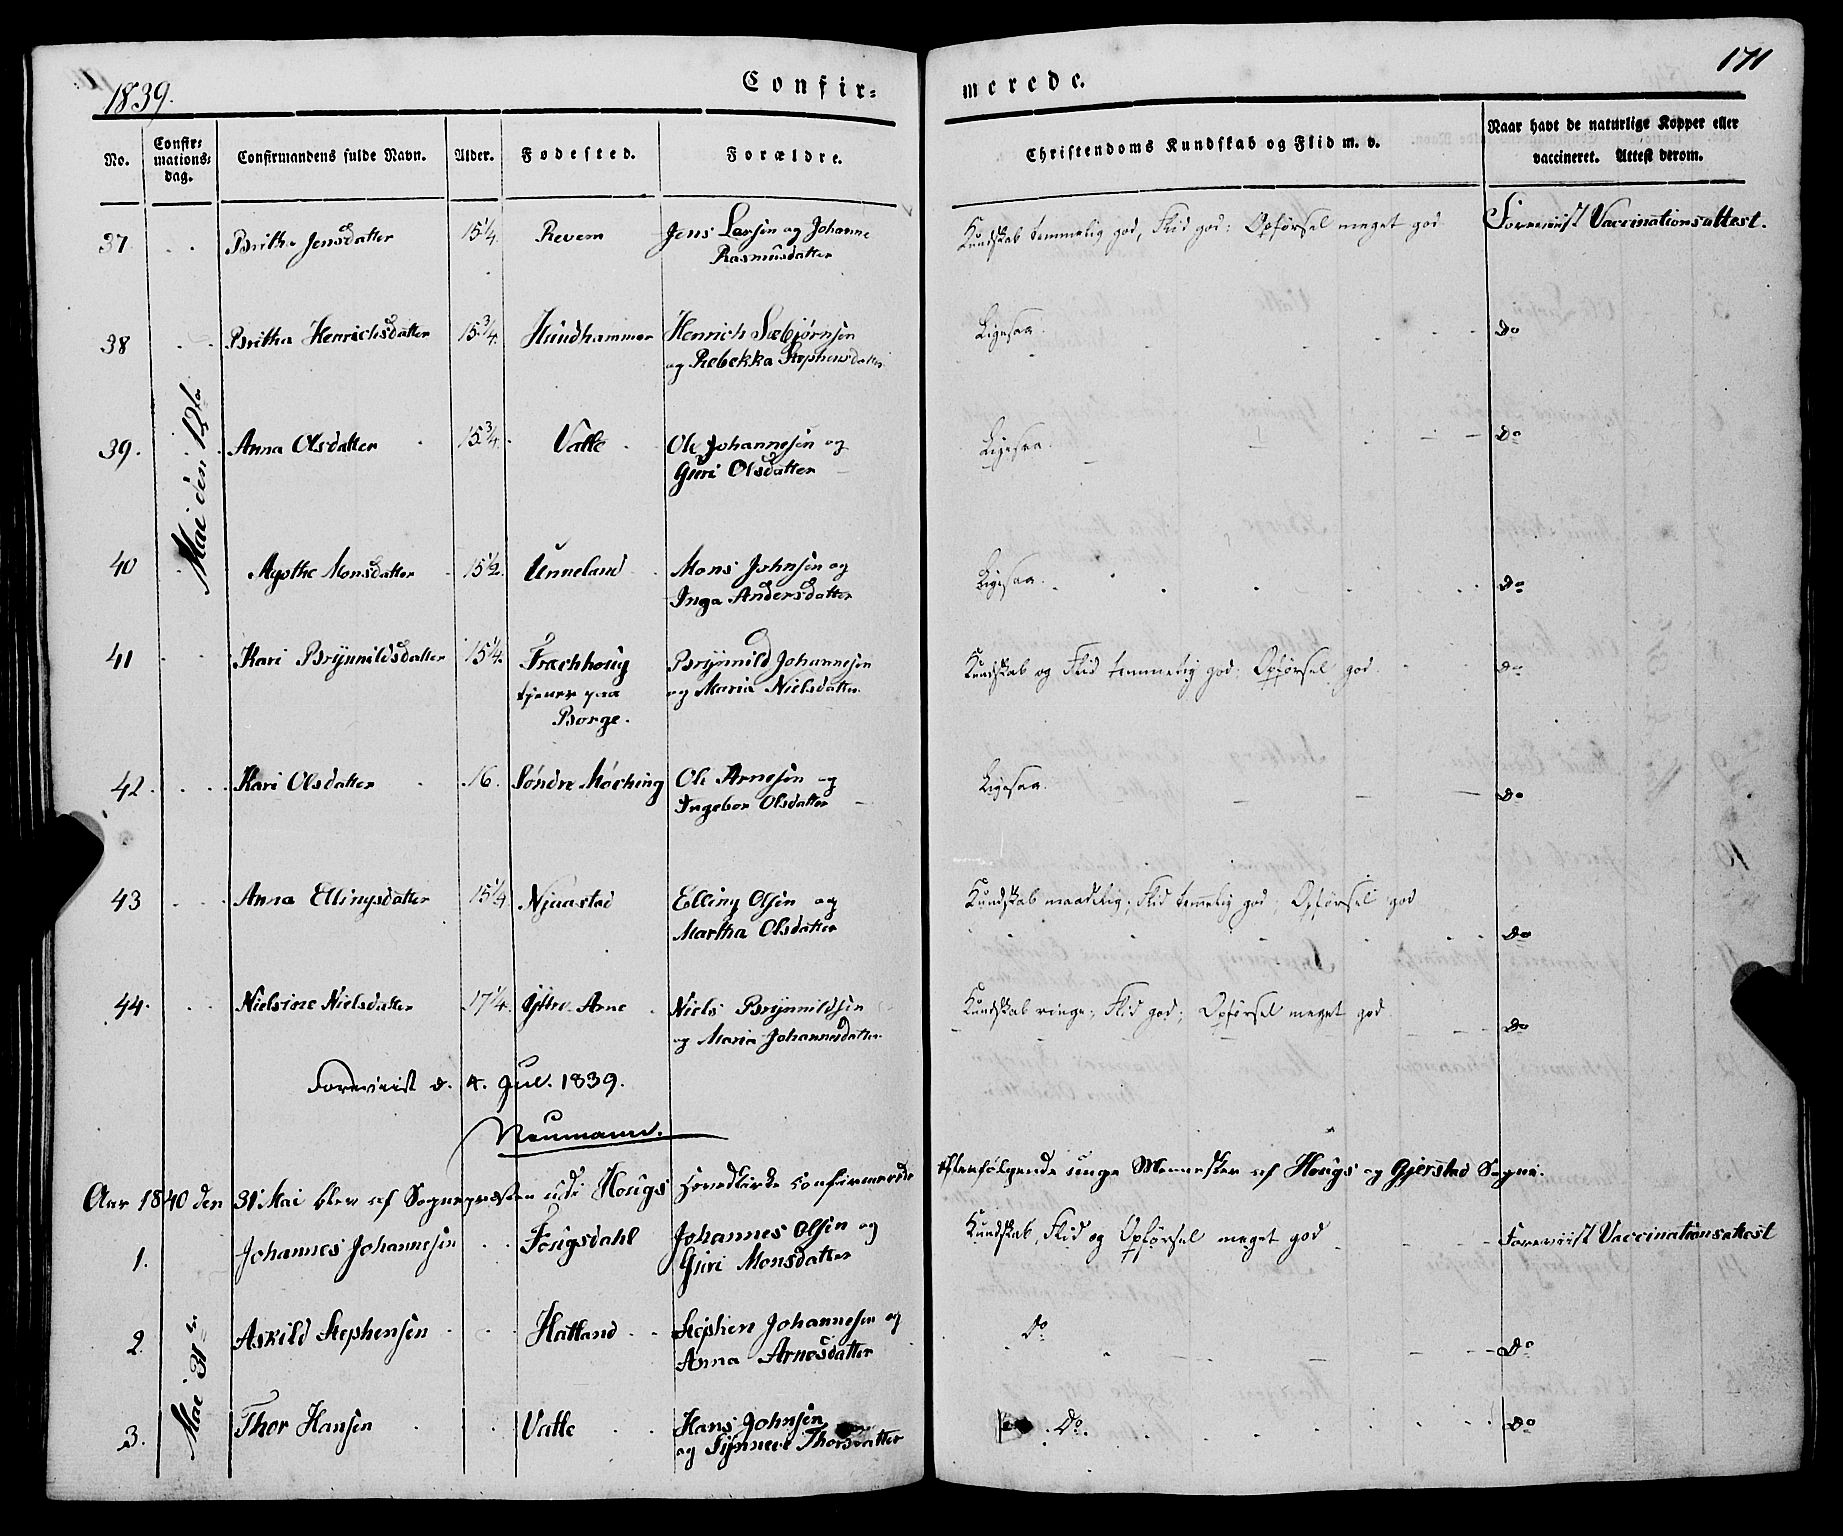 1839.
Confir=
merede.
171
No.
Confir=
mations=
dag.
Confirmandens fulde Navn.
Alder.
Fødested.
Forældre.
Christendoms Kundskab og Flid m. v.
Naar havt de naturlige Kopper eller
vaccineret. Attest derom.
Mai den 12te
37 Britha Jensdatter 15 1/4 Revem Jens Larsen og Johanne
Rasmusdatter
Kundskab temmelig god, Flid god; Opførsel meget god
Foreviist Vaccinationsattest.
38 Britha Henrichsdatter 15 3/4. Hundhammer Henrich Sæbjørnsen
og Rebekka Stephensdatter
Ligesaa. Do
39. Anna Olsdatter 15 3/4. Vatle Ole Johannesen og
Guri Olsdatter
Ligesaa. Do
40 Agathe Monsdatter 15 1/2. Unneland Mons Johnsen og
Inga Andersdatter
Ligesaa. Do
41 Kari Brynnildsdatter 15 1/4. Træthoug Brynnild Johannesen
tjener paa og Maria Nielsdatter.
Borge.
Kundskab og Flid temmelig god; Opførsel god. Do
42. Kari Olsdatter 16. Søndre Mæhing Ole Arnesen og
Ingebor Olsdatter
Ligesaa. Do
43 Anna Ellingsdatter 15 1/4 Njaastad Elling Olsen og
Martha Olsdatter
Kundskab maadelig; Flid temelig god; Opførsel god
Do
44. Nielsine Nielsdatter 17 1/4. Ystre Arne Niels Brynnildsen
og Maria Johannesdatter
Kundskab ringe; Flid god; Opførsel meget god
Do
Foreviist d. 4. Jul. 1839.
Neumann.
Aar 1840 den 31 Mai blev af Sognepræsten udi Hougs Hovedkirke confirmerede
Efterfølgende unge Mennesker af Hougs og Gjerstad Sogne.
Mai 31te
1. Johannes Johannesen Fougsdahl Johannes Olsen og
Guri Monsdatter
Kundskab, Flid og Opførsel meget god
Foreviist Vaccinationsattest
2. Askild Stephensen Hatland Stephen Johannesen og
Anna Arnesdatter
Do Do
3. Thor Hansen Vatle Hans Johnsen
og Synneve Thorsdatter
Do. Do